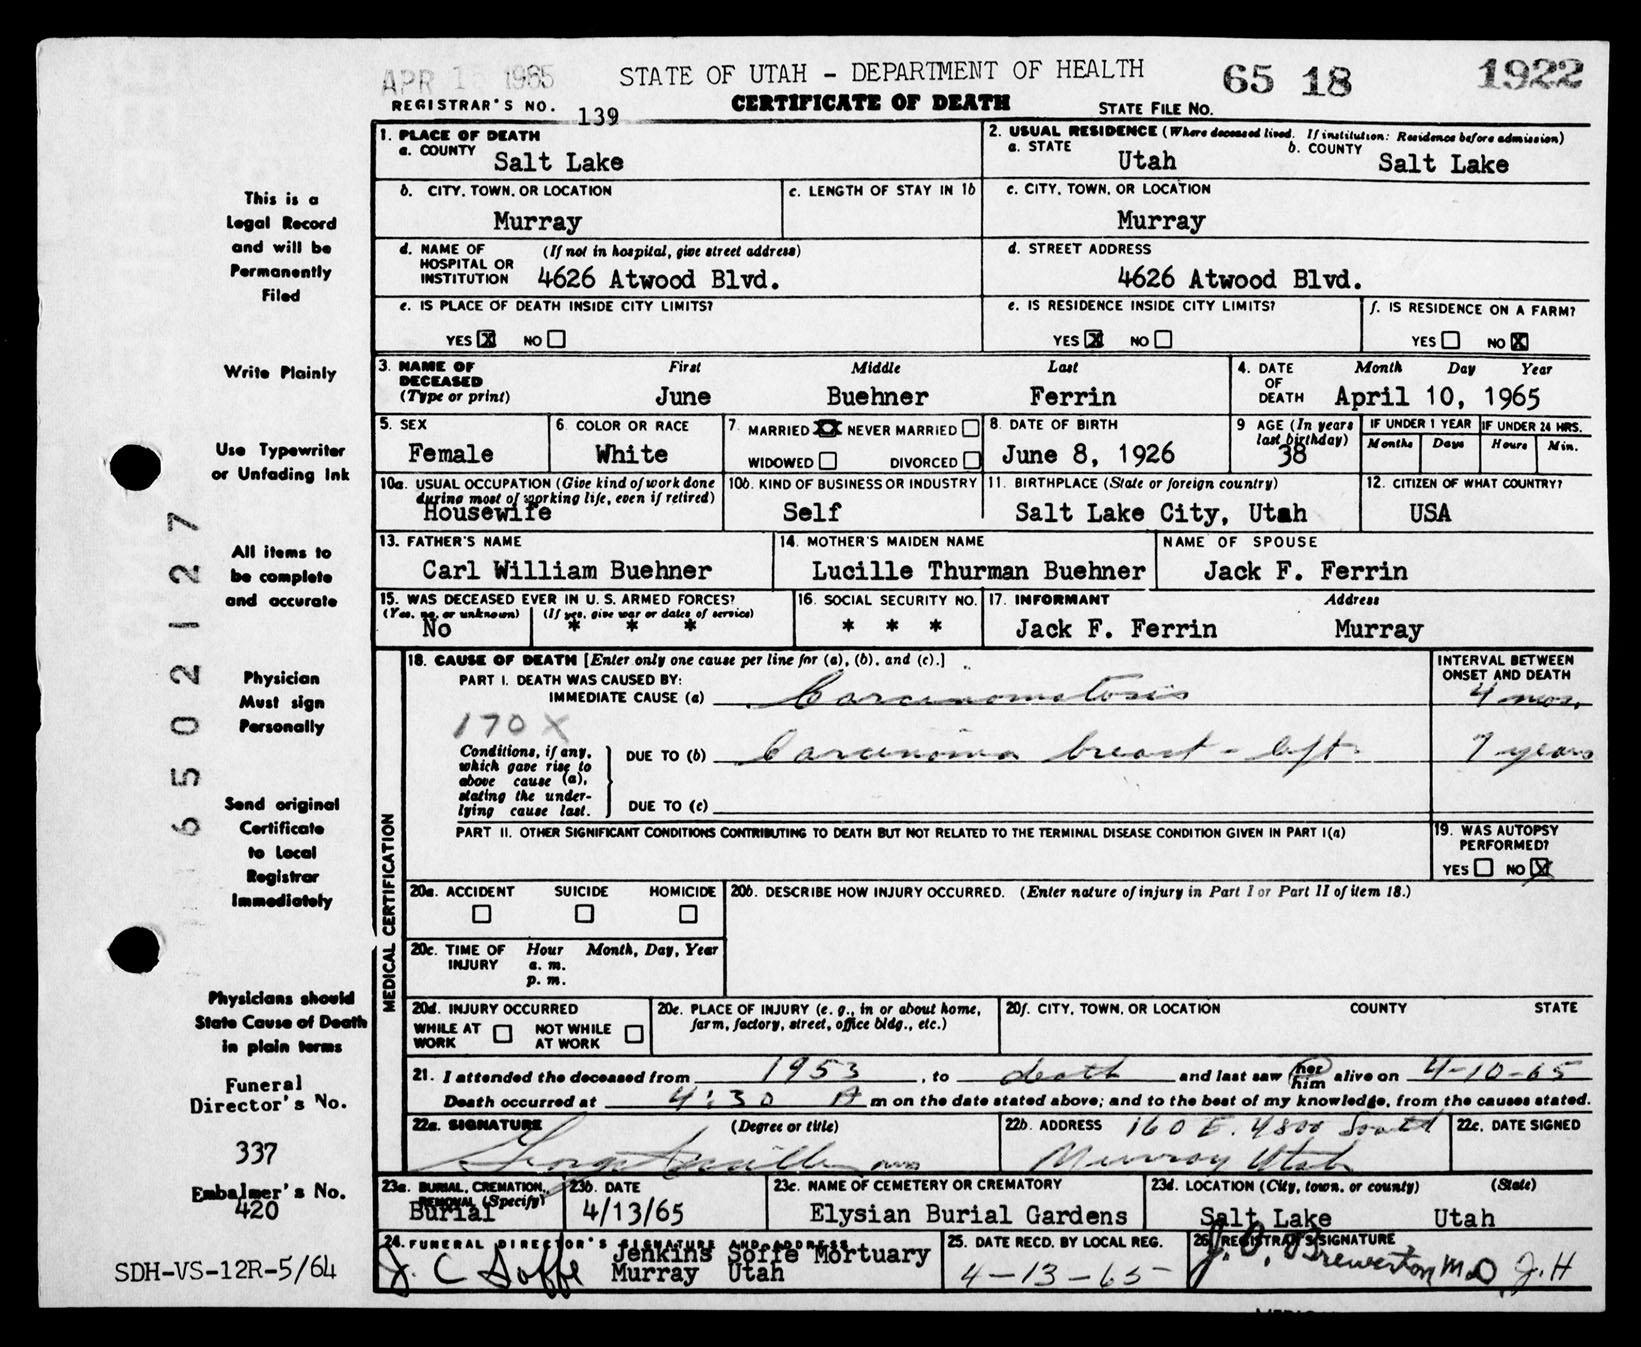 APR 15 1965 STATE OF UTAH - DEPARTMENT OF HEALTH 65 18 1922
REGISTRAR'S NO. 139 CERTIFICATE OF DEATH STATE FILE NO.
1. PLACE OF DEATH
a. COUNTY Salt Lake
2. USUAL RESIDENCE (Where deceased lived. If institution: Residence before admission)
a. STATE Utah b. COUNTY Salt Lake
b. CITY, TOWN, OR LOCATION Murray
c. LENGTH OF STAY IN 1b
c. CITY, TOWN, OR LOCATION Murray
d. NAME OF HOSPITAL OR INSTITUTION (If not in hospital, give street address) 4626 Atwood Blvd.
d. STREET ADDRESS 4626 Atwood Blvd.
e. IS PLACE OF DEATH INSIDE CITY LIMITS? YES X NO
e. IS RESIDENCE INSIDE CITY LIMITS? YES X NO
f. IS RESIDENCE ON A FARM? YES NO X
3. NAME OF DECEASED (Type or print) First June Middle Buehner Last Ferrin
4. DATE OF DEATH Month Day Year April 10, 1965
5. SEX Female
6. COLOR OR RACE White
7. MARRIED X NEVER MARRIED
WIDOWED DIVORCED
8. DATE OF BIRTH June 8, 1926
9 AGE (In years last birthday) 38
IF UNDER 1 YEAR Months Days
IF UNDER 24 HRS. Hours Min.
10a. USUAL OCCUPATION (Give kind of work done during most of working life, even if retired) Housewife
10b. KIND OF BUSINESS OR INDUSTRY Self
11. BIRTHPLACE (State or foreign country) Salt Lake City, Utah
12. CITIZEN OF WHAT COUNTRY? USA
13. FATHER'S NAME Carl William Buehner
14. MOTHER'S MAIDEN NAME Lucille Thurman Buehner
NAME OF SPOUSE Jack F. Ferrin
15. WAS DECEASED EVER IN U. S. ARMED FORCES?
(Yes, no, or unknown) No (If yes, give war or dates of service) * * *
16. SOCIAL SECURITY NO. * * *
17. INFORMANT Jack F. Ferrin Address Murray
MEDICAL CERTIFICATION
18. CAUSE OF DEATH [Enter only one cause per line for (a), (b), and (c).]
INTERVAL BETWEEN ONSET AND DEATH
PART I. DEATH WAS CAUSED BY:
IMMEDIATE CAUSE (a) Carcinomatosis 4 mos.
170X
Conditions, if any, which gave rise to above cause (a), stating the underlying cause last.
DUE TO (b) Carcinoma breast - left 7 years
DUE TO (c)
PART II. OTHER SIGNIFICANT CONDITIONS CONTRIBUTING TO DEATH BUT NOT RELATED TO THE TERMINAL DISEASE CONDITION GIVEN IN PART I(a)
19. WAS AUTOPSY PERFORMED? YES NO X
20a. ACCIDENT SUICIDE HOMICIDE
20b. DESCRIBE HOW INJURY OCCURRED. (Enter nature of injury in Part I or Part II of item 18.)
20c. TIME OF INJURY Hour a. m. p. m. Month, Day, Year
20d. INJURY OCCURRED WHILE AT WORK NOT WHILE AT WORK
20e. PLACE OF INJURY (e. g., in or about home, farm, factory, street, office bldg., etc.)
20f. CITY, TOWN, OR LOCATION COUNTY STATE
21. I attended the deceased from 1953, to death and last saw her him alive on 4-10-65
Death occurred at 4:30 A m on the date stated above; and to the best of my knowledge, from the causes stated.
22a. SIGNATURE (Degree or title)
22b. ADDRESS 160 E. 4800 South
Murray Utah
22c. DATE SIGNED
23a. BURIAL, CREMATION, REMOVAL (Specify) Burial
23b. DATE 4/13/65
23c. NAME OF CEMETERY OR CREMATORY Elysian Burial Gardens
23d. LOCATION (City, town, or county) (State) Salt Lake Utah
24. FUNERAL DIRECTOR'S SIGNATURE AND ADDRESS
J. C Soffe Jenkins Soffe Mortuary
Murray Utah
25. DATE RECD. BY LOCAL REG. 4-13-65
26. REGISTRAR'S SIGNATURE Brewerton M.D J.H
This is a
Legal Record
and will be
Permanently
Filed
Write Plainly
Use Typewriter
or Unfading Ink
All items to
be complete
and accurate
Physician
Must sign
Personally
Send original
Certificate
to Local
Registrar
Immediately
Physicians should
State Cause of Death
in plain terms
Funeral
Director's No.
337
Embalmer's No.
420
SDH-VS-12R-5/64
65021 27